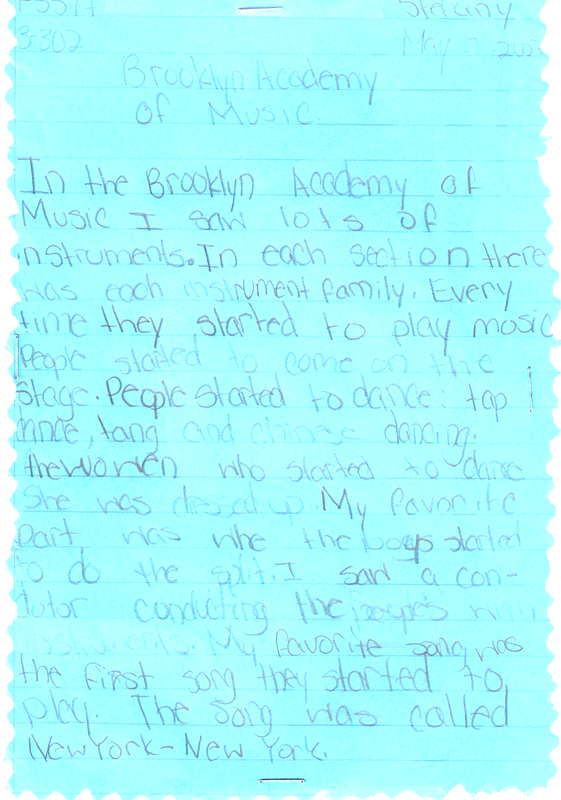 Stefany
3-302 May
Brooklyn Academy
of Music.
In the Brooklyn Academy of
Music I saw lots of
instruments. In each section there
was each instrument family. Every
time they started to play music
People started to come on the
stage. People started to dance: tap
dance, tang and chinese dancing.
the women who started to dance
She was dressed up. My favorite
part was whe the boys started
to do the split. I saw a con-
dutor conducting the people's
instruments. My favorite song was
the first song they started to
play. The song was called
New York-New York.